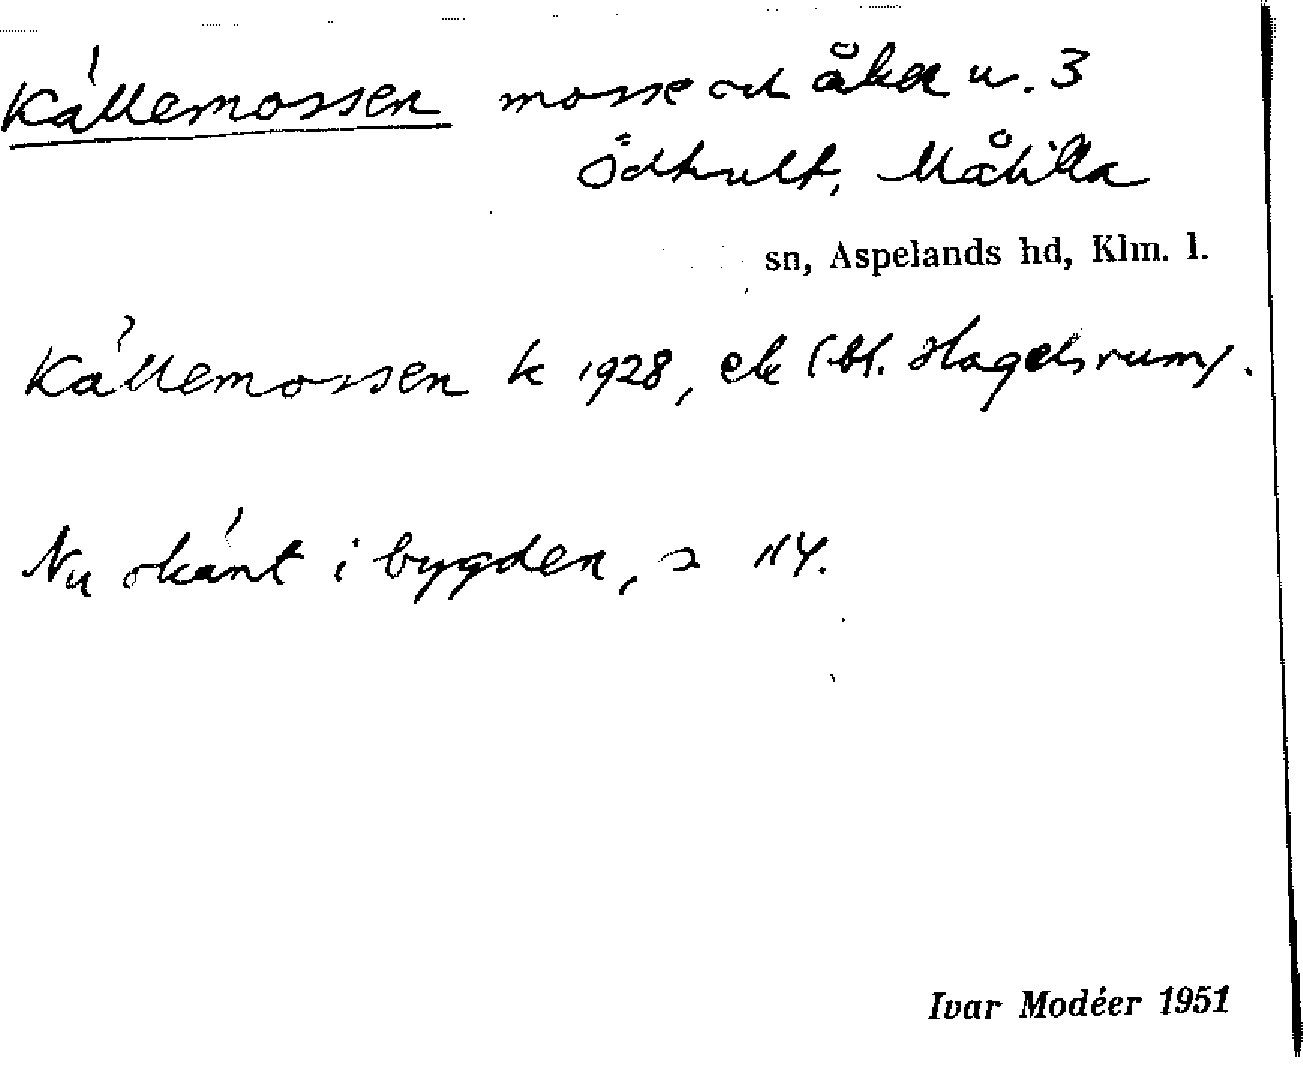 Källemossen mosse och åker u. 3
Ödhult, Målilla
sn, Aspelands hd, Klm. l.
Källemossen k 1928, ek (bl. Hagelsrum).
Nu okänt i bygden, s 114.
Ivar Modéer 1951